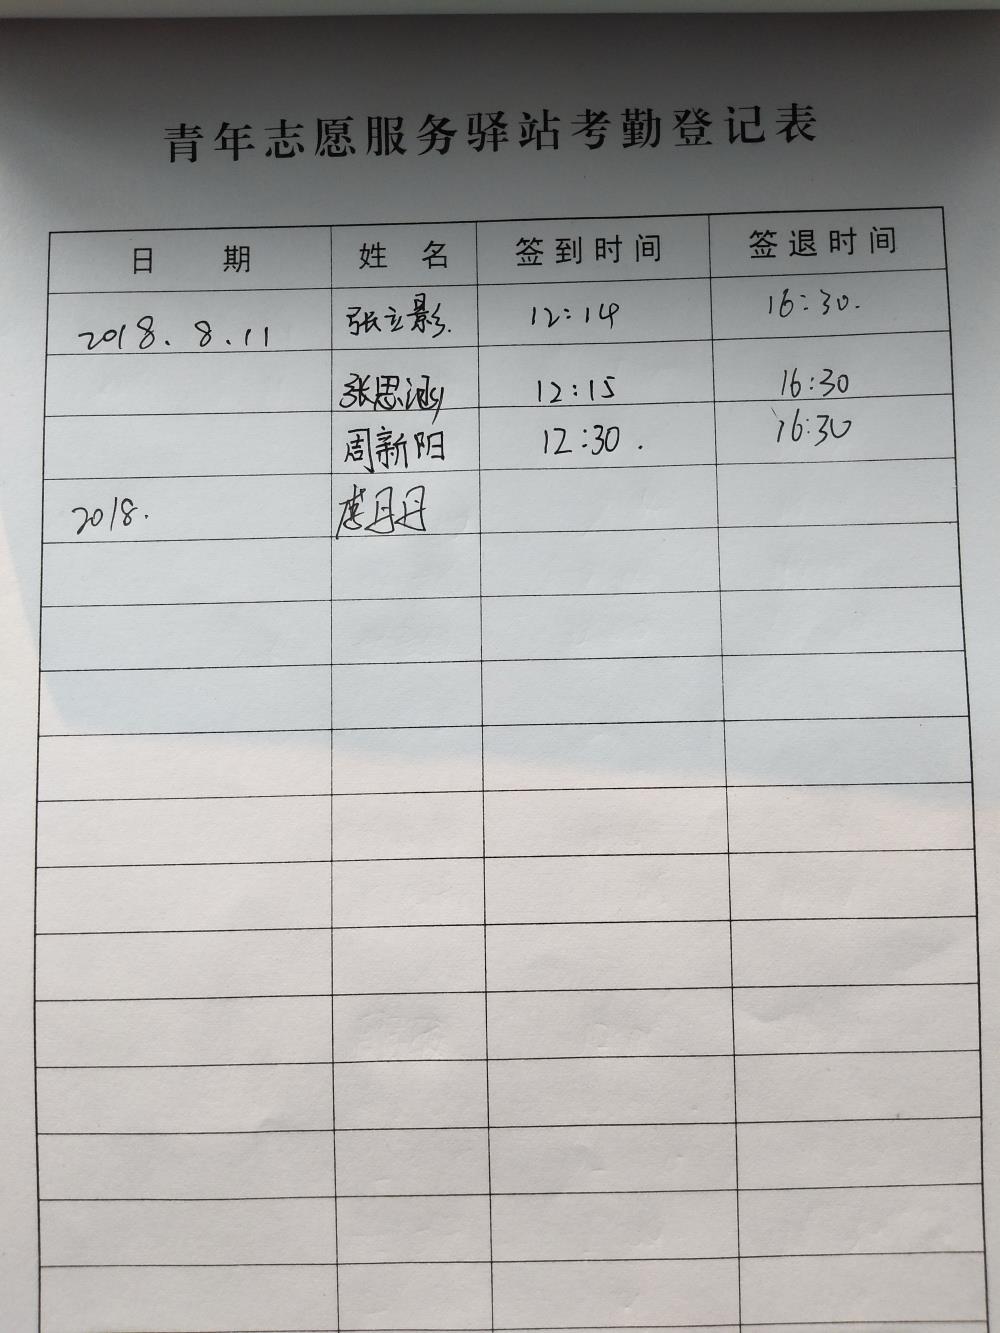 青年志愿服务驿站考勤登记表
日 期 姓 名 签到时间 签退时间
2018.8.11 张立影. 12:14 16:30.
张思涵 12:15 16:30
周新阳 12:30. 16:30
2018. 丹丹